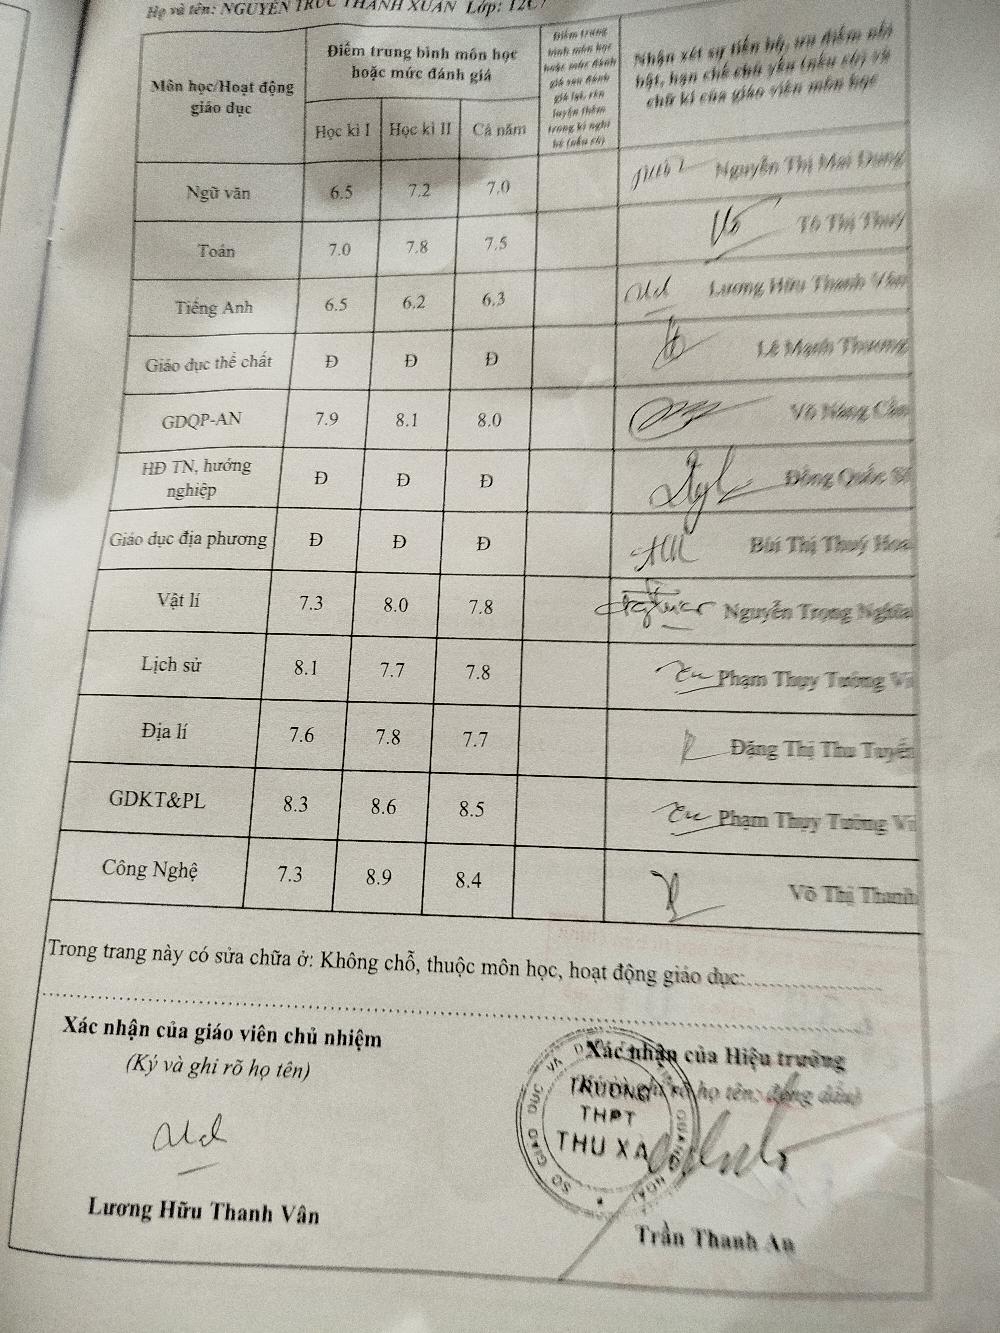 Họ và tên: NGUYỄN TRÚC THANH XUÂN Lớp: 12C7
Môn học/Hoạt động giáo dục
Điểm trung bình môn học
hoặc mức đánh giá
Học kì I Học kì II Cả năm
Điểm trung
bình môn học
hoặc mức đánh
giá sau đánh
giá lại, rèn
luyện thêm
trong kì nghỉ
hè (nếu có)
Nhận xét sự tiến bộ, ưu điểm nổi
bật, hạn chế chủ yếu (nếu có) và
chữ kí của giáo viên môn học
Ngữ văn 6.5 7.2 7.0 Nguyễn Thị Mai Dung
Toán 7.0 7.8 7.5 Tô Thị Thuý
Tiếng Anh 6.5 6.2 6.3 Lương Hữu Thanh Vân
Giáo dục thể chất Đ Đ Đ Lê Mạnh Thương
GDQP-AN 7.9 8.1 8.0 Võ Năng
HĐ TN, hướng
nghiệp Đ Đ Đ Đồng Quốc
Giáo dục địa phương Đ Đ Đ Bùi Thị Thuý Hoa
Vật lí 7.3 8.0 7.8 Nguyễn Trọng Nghĩa
Lịch sử 8.1 7.7 7.8 Phạm Thụy Tường Vi
Địa lí 7.6 7.8 7.7 Đặng Thị Thu Tuyến
GDKT&PL 8.3 8.6 8.5 Phạm Thụy Tường Vi
Công Nghệ 7.3 8.9 8.4 Võ Thị Thanh
Trong trang này có sửa chữa ở: Không chỗ, thuộc môn học, hoạt động giáo dục:
Xác nhận của giáo viên chủ nhiệm
(Ký và ghi rõ họ tên)
Lương Hữu Thanh Vân
Xác nhận của Hiệu trưởng
ghi rõ họ tên, đóng dấu)
SỞ GIÁO DỤC VÀ QUẢNG NGÃI
TRƯỜNG
THPT
THU XÀ
Trần Thanh An